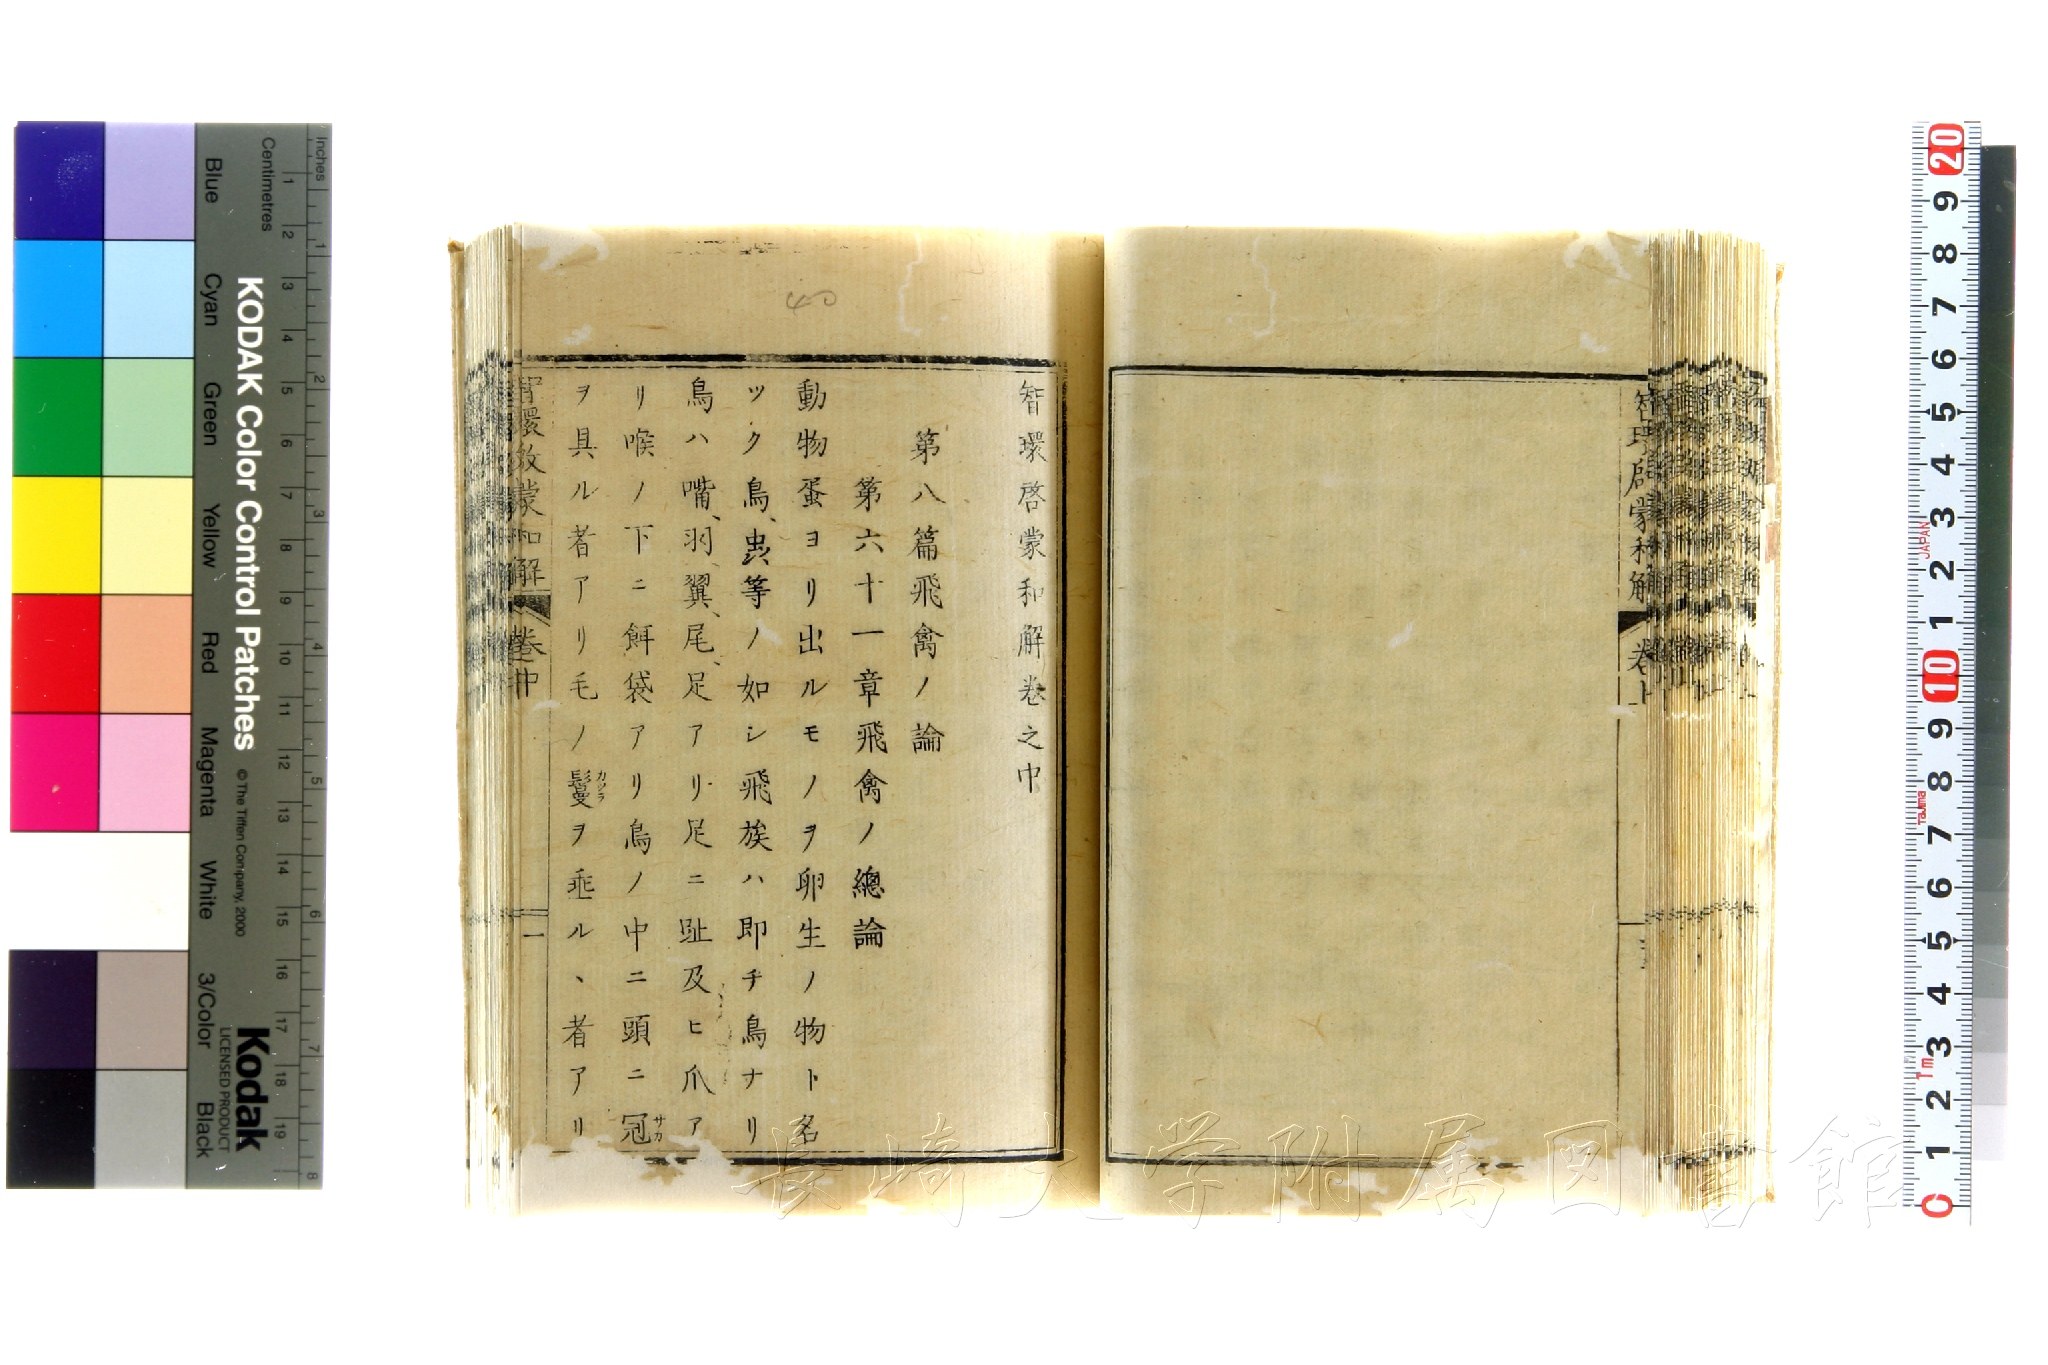 智環啓蒙和解卷之中
第八篇飛禽ノ論
第六十一章飛禽ノ總論
動物蛋ヨリ出ルモノヲ卵生ノ物ト名
ツク鳥、虫、等ノ如シ飛族ハ即チ鳥ナリ
鳥ハ嘴、羽、翼、尾、足アリ足ニ趾及ヒ爪ア
リ喉ノ下ニ餌袋アリ鳥ノ中ニ頭ニ冠サカ
ヲ具ル者アリ毛ノ鬘カツラヲ垂ル、者アリ
智環啓蒙和解 卷中 一
智環啓蒙和解 卷上
長崎大学附属図書館
KODAK Color Control Patches © The Tiffen Company, 2000
Kodak
LICENSED PRODUCT
Inches
Centimetres
Blue Cyan Green Yellow Red Magenta White 3/Color Black
1 2 3 4 5 6 7 8 9 10 11 12 13 14 15 16 17 18 19
1 2 3 4 5 6 7 8
20 9 8 7 6 5 4 3 2 1 10 9 8 7 6 5 4 3 2 1 0
JAPAN
TaJima
Tm